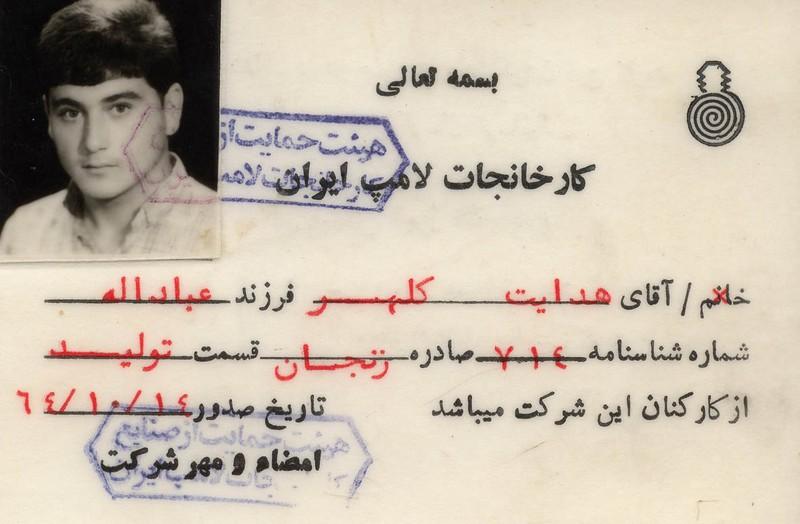 بسمه تعالی
هیئت حمایت از
کارخانجات لامپ ایران
خانم / آقای هدایت کلهر فرزند عباداله
شماره شناسنامه ۷۰۱٤ صادره زنجان قسمت تولید
از کارکنان این شرکت میباشد تاریخ صدور ٦٤/١٠/١٤
هیئت حمایت از صنایع
امضاء و مهر شرکت